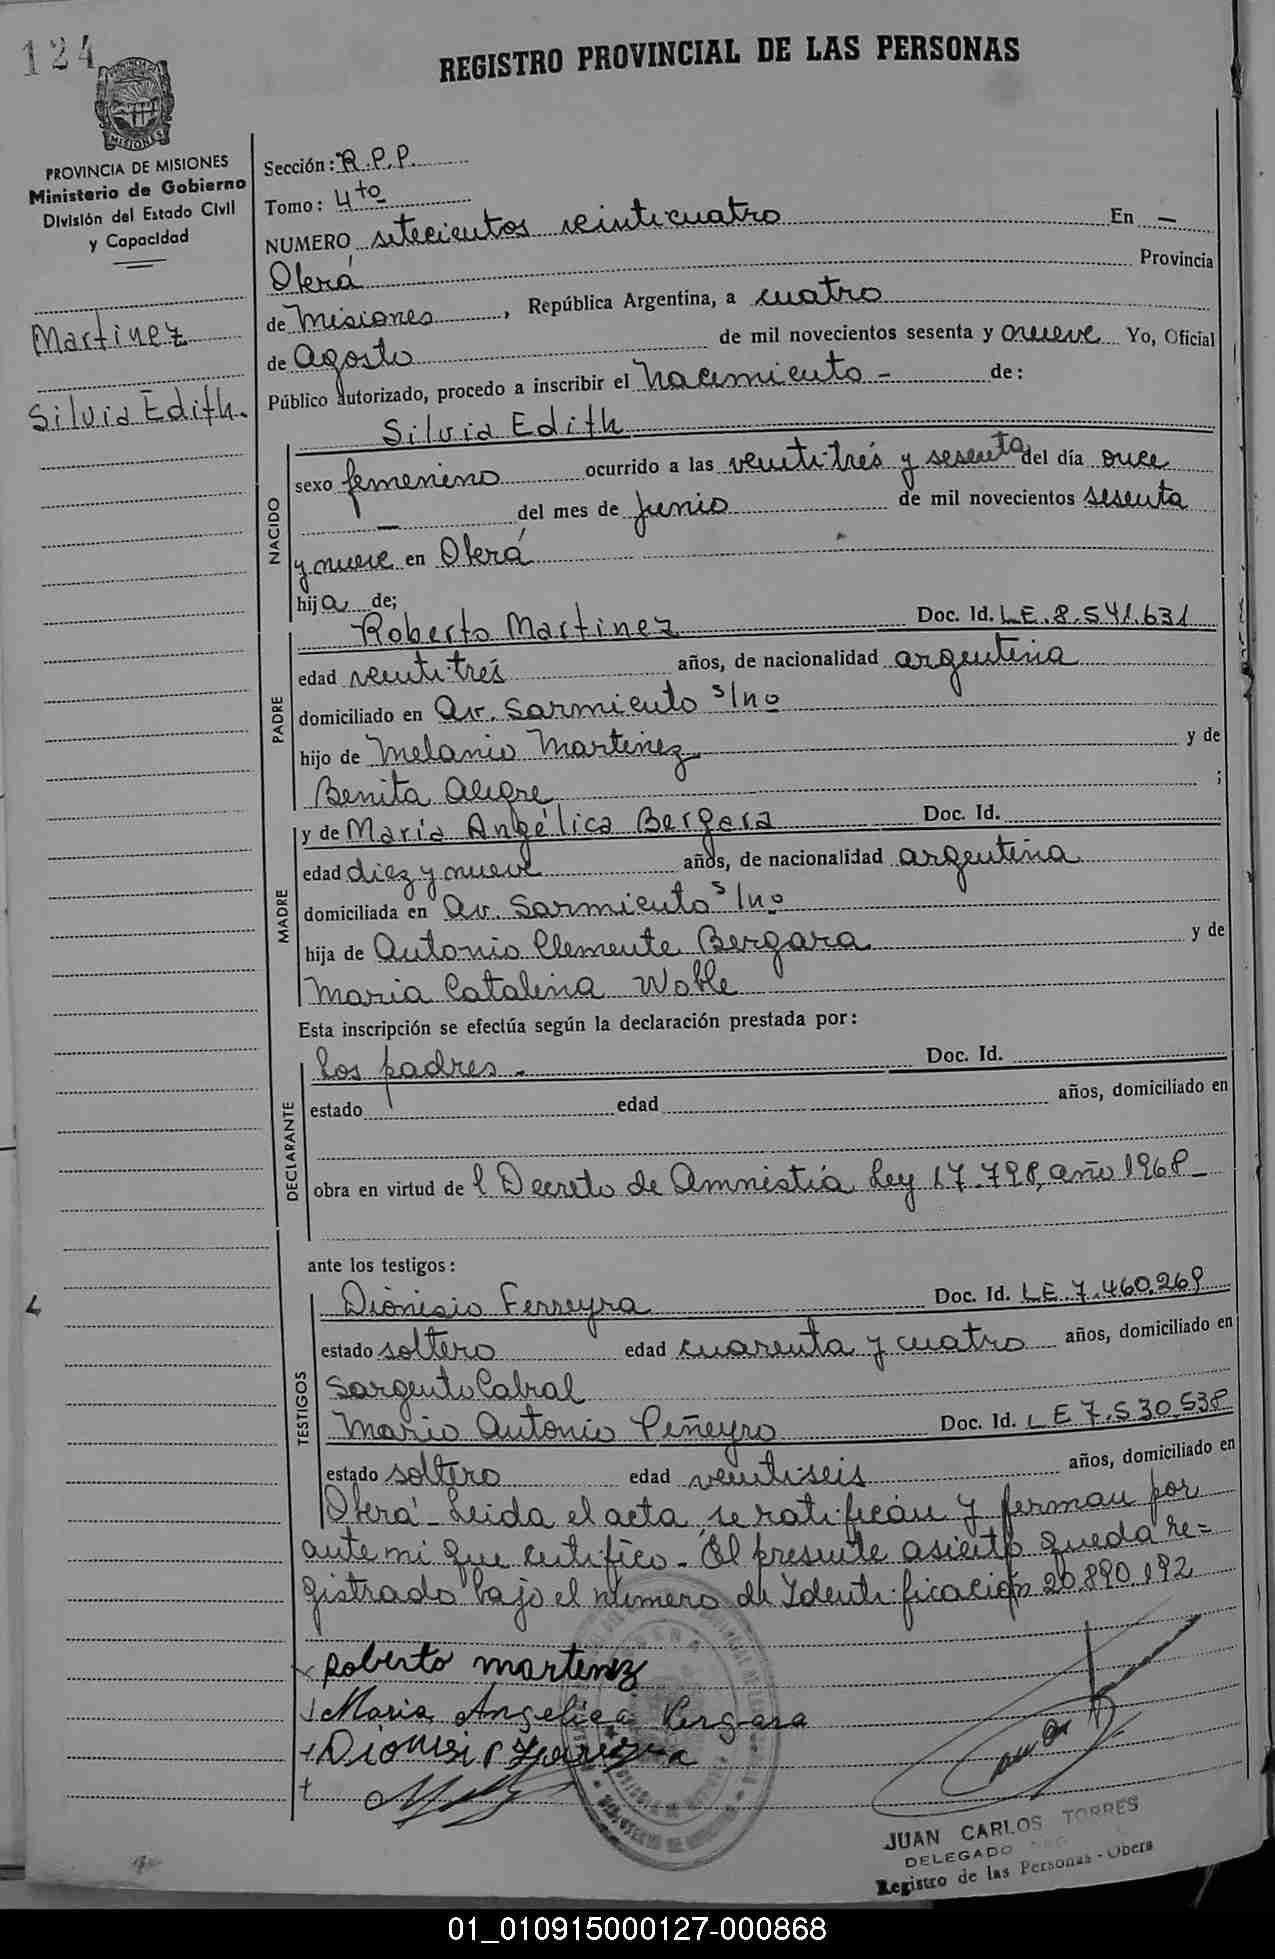 124
REGISTRO PROVINCIAL DE LAS PERSONAS
MISIONES
PROVINCIA DE MISIONES
Ministerio de Gobierno
División del Estado Civil
y Capacidad
Martinez
Silvia Edith.
Sección: R.P.P.
Tomo: 4to
NUMERO setecientos veinticuatro En —
Oberá Provincia
de Misiones, República Argentina, a cuatro
de Agosto de mil novecientos sesenta y nueve Yo, Oficial
Público autorizado, procedo a inscribir el nacimiento - de:
NACIDO
Silvia Edith
sexo femenino ocurrido a las veinti-trés y sesenta del día once
— del mes de Junio de mil novecientos sesenta
y nueve en Oberá
hija de;
PADRE
Roberto Martinez Doc. Id. LE. 8.541.631
edad veintitrés años, de nacionalidad argentina
domiciliado en Av. Sarmiento s/no
hijo de Melanio Martinez y de
Benita Alegre ;
MADRE
y de María Angélica Bergara Doc. Id.
edad diez y nueve años, de nacionalidad argentina
domiciliada en Av. Sarmiento s/no
hija de Antonio Clemente Bergara y de
Maria Catalina Woble
Esta inscripción se efectúa según la declaración prestada por:
DECLARANTE
Los padres - Doc. Id.
estado edad años, domiciliado en
obra en virtud de l Decreto de Amnistía Ley 17.798, año 1968 -
ante los testigos:
TESTIGOS
Dionisio Ferreyra Doc. Id. LE. 7.460.269
estado soltero edad cuarenta y cuatro años, domiciliado en
Sargento Cabral
Mario Antonio Piñeyro Doc. Id. LE 7.530.538
estado soltero edad veinti-seis años, domiciliado en
Oberá - Leida el acta se ratifican y firman por
ante mi que certifico - El presente asiento queda re=
gistrado bajo el número de Identificación 20.890.192
Roberto martinez
Maria Angelica Vergara
Dionisi
JUAN CARLOS TORRES
DELEGADO
Registro de las Personas - Obera
01_010915000127-000868